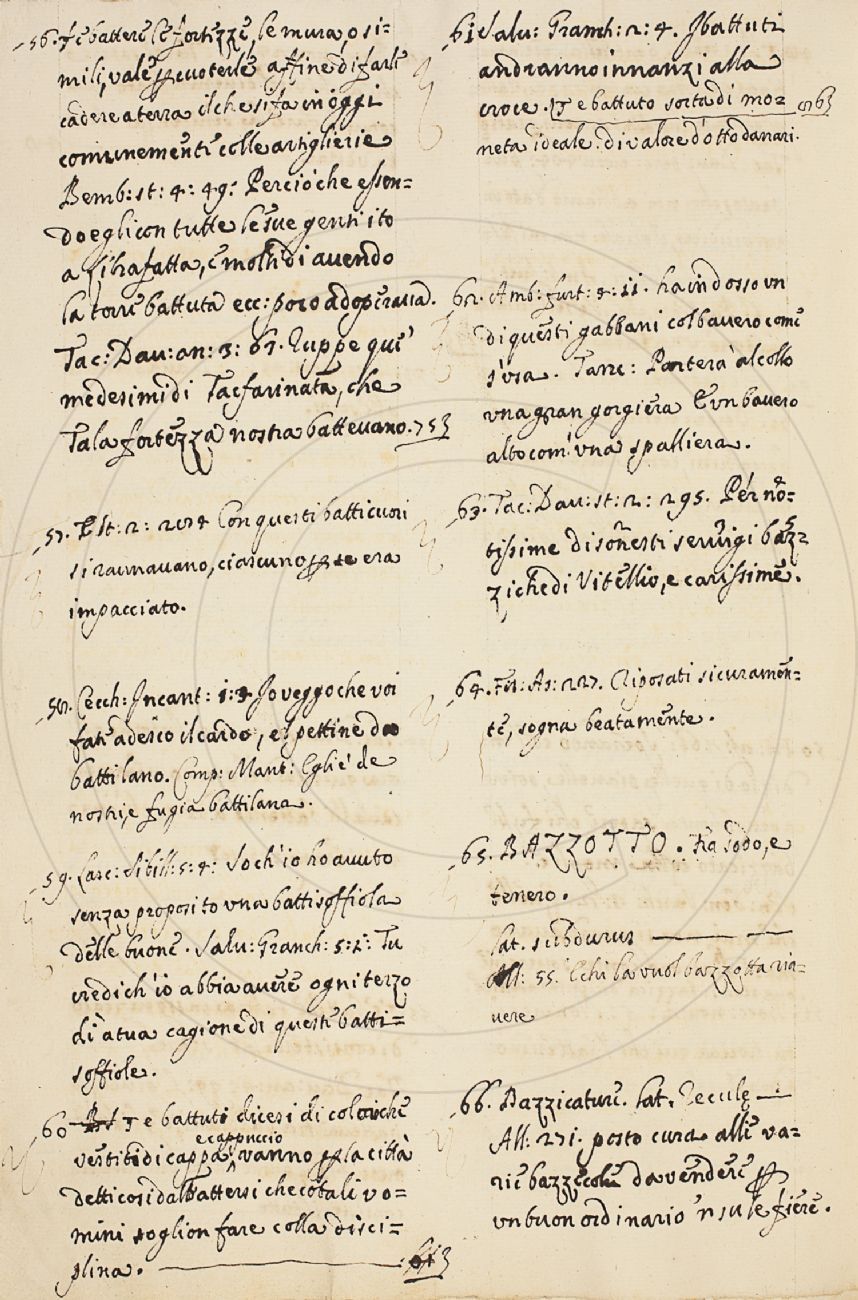 56. fe battere le fortezze, le mura, o si-
mili, vale percuoterle affine di farle
cadere a terra il che si fa in oggi
comunemente colle artiglierie
Bemb: st: 4: 49: Perciò che essen-
do egli con tutte le sue genti ito
a Librafatta, e molti dì avendo
la torre battuta ecc: poco adoperava.
Tac: Dav: an: 3: 67. Ruppe que'
medesimi di Tacfarinata, che
Tala fortezza nostra battevano. 753
57. st: 2: Con questi batticuori
si raunavano, ciascuno per te era
impacciato.
58. Cecch: Incant: 1: 3 Io veggo che voi
fate adesso il cardo, e 'l pettine da
battilano. Comp: Mant: Egli è de
nostri, e fugia battilana.
59. Lasc: Sibill: 5: 4: So ch'io ho avuto
senza proposito una battisoffiola
delle buone. Salv: Granch: 5: 2: Tu
credi ch'io abbia avere ogni terzo
dì a tua cagione di queste batti=
soffiole.
60 e battuti dicesi di coloro che
vestiti di cappa e cappuccio vanno per la città
detti così dal battersi che cotali uo=
mini soglion fare colla disci-
plina.
61 Salv: Granch: 2: 4. I battuti
andranno innanzi alla
croce. e battuto sorta di mo=
neta ideale di valore d'otto danari.
62. Amb: furt: 4: 11. ha indosso un
di questi gabbani col bavero come
s'usa. Tanc: Porterà al collo
una gran gorgiera E un bavero
alto com' una spalliera.
63. Tac: Dav: st: 2: 295. Per no=
tissime disonesti servigi baz=
ziche di Vitellio, e carissime.
64. Fir: As: 227. Riposati sicuramen=
te, sogna beatamente.
65. BAZZOTTO. Fra sodo, e
tenero.
Lat. subdurus
All: 55. E chi la vuol bazzotta ria=
vere
66. Bazzicature. Lat. Reculę
All: 271. posto cura alle va=
rie bazzecole da vendere per
un buon ordinario 'n su le fiere.